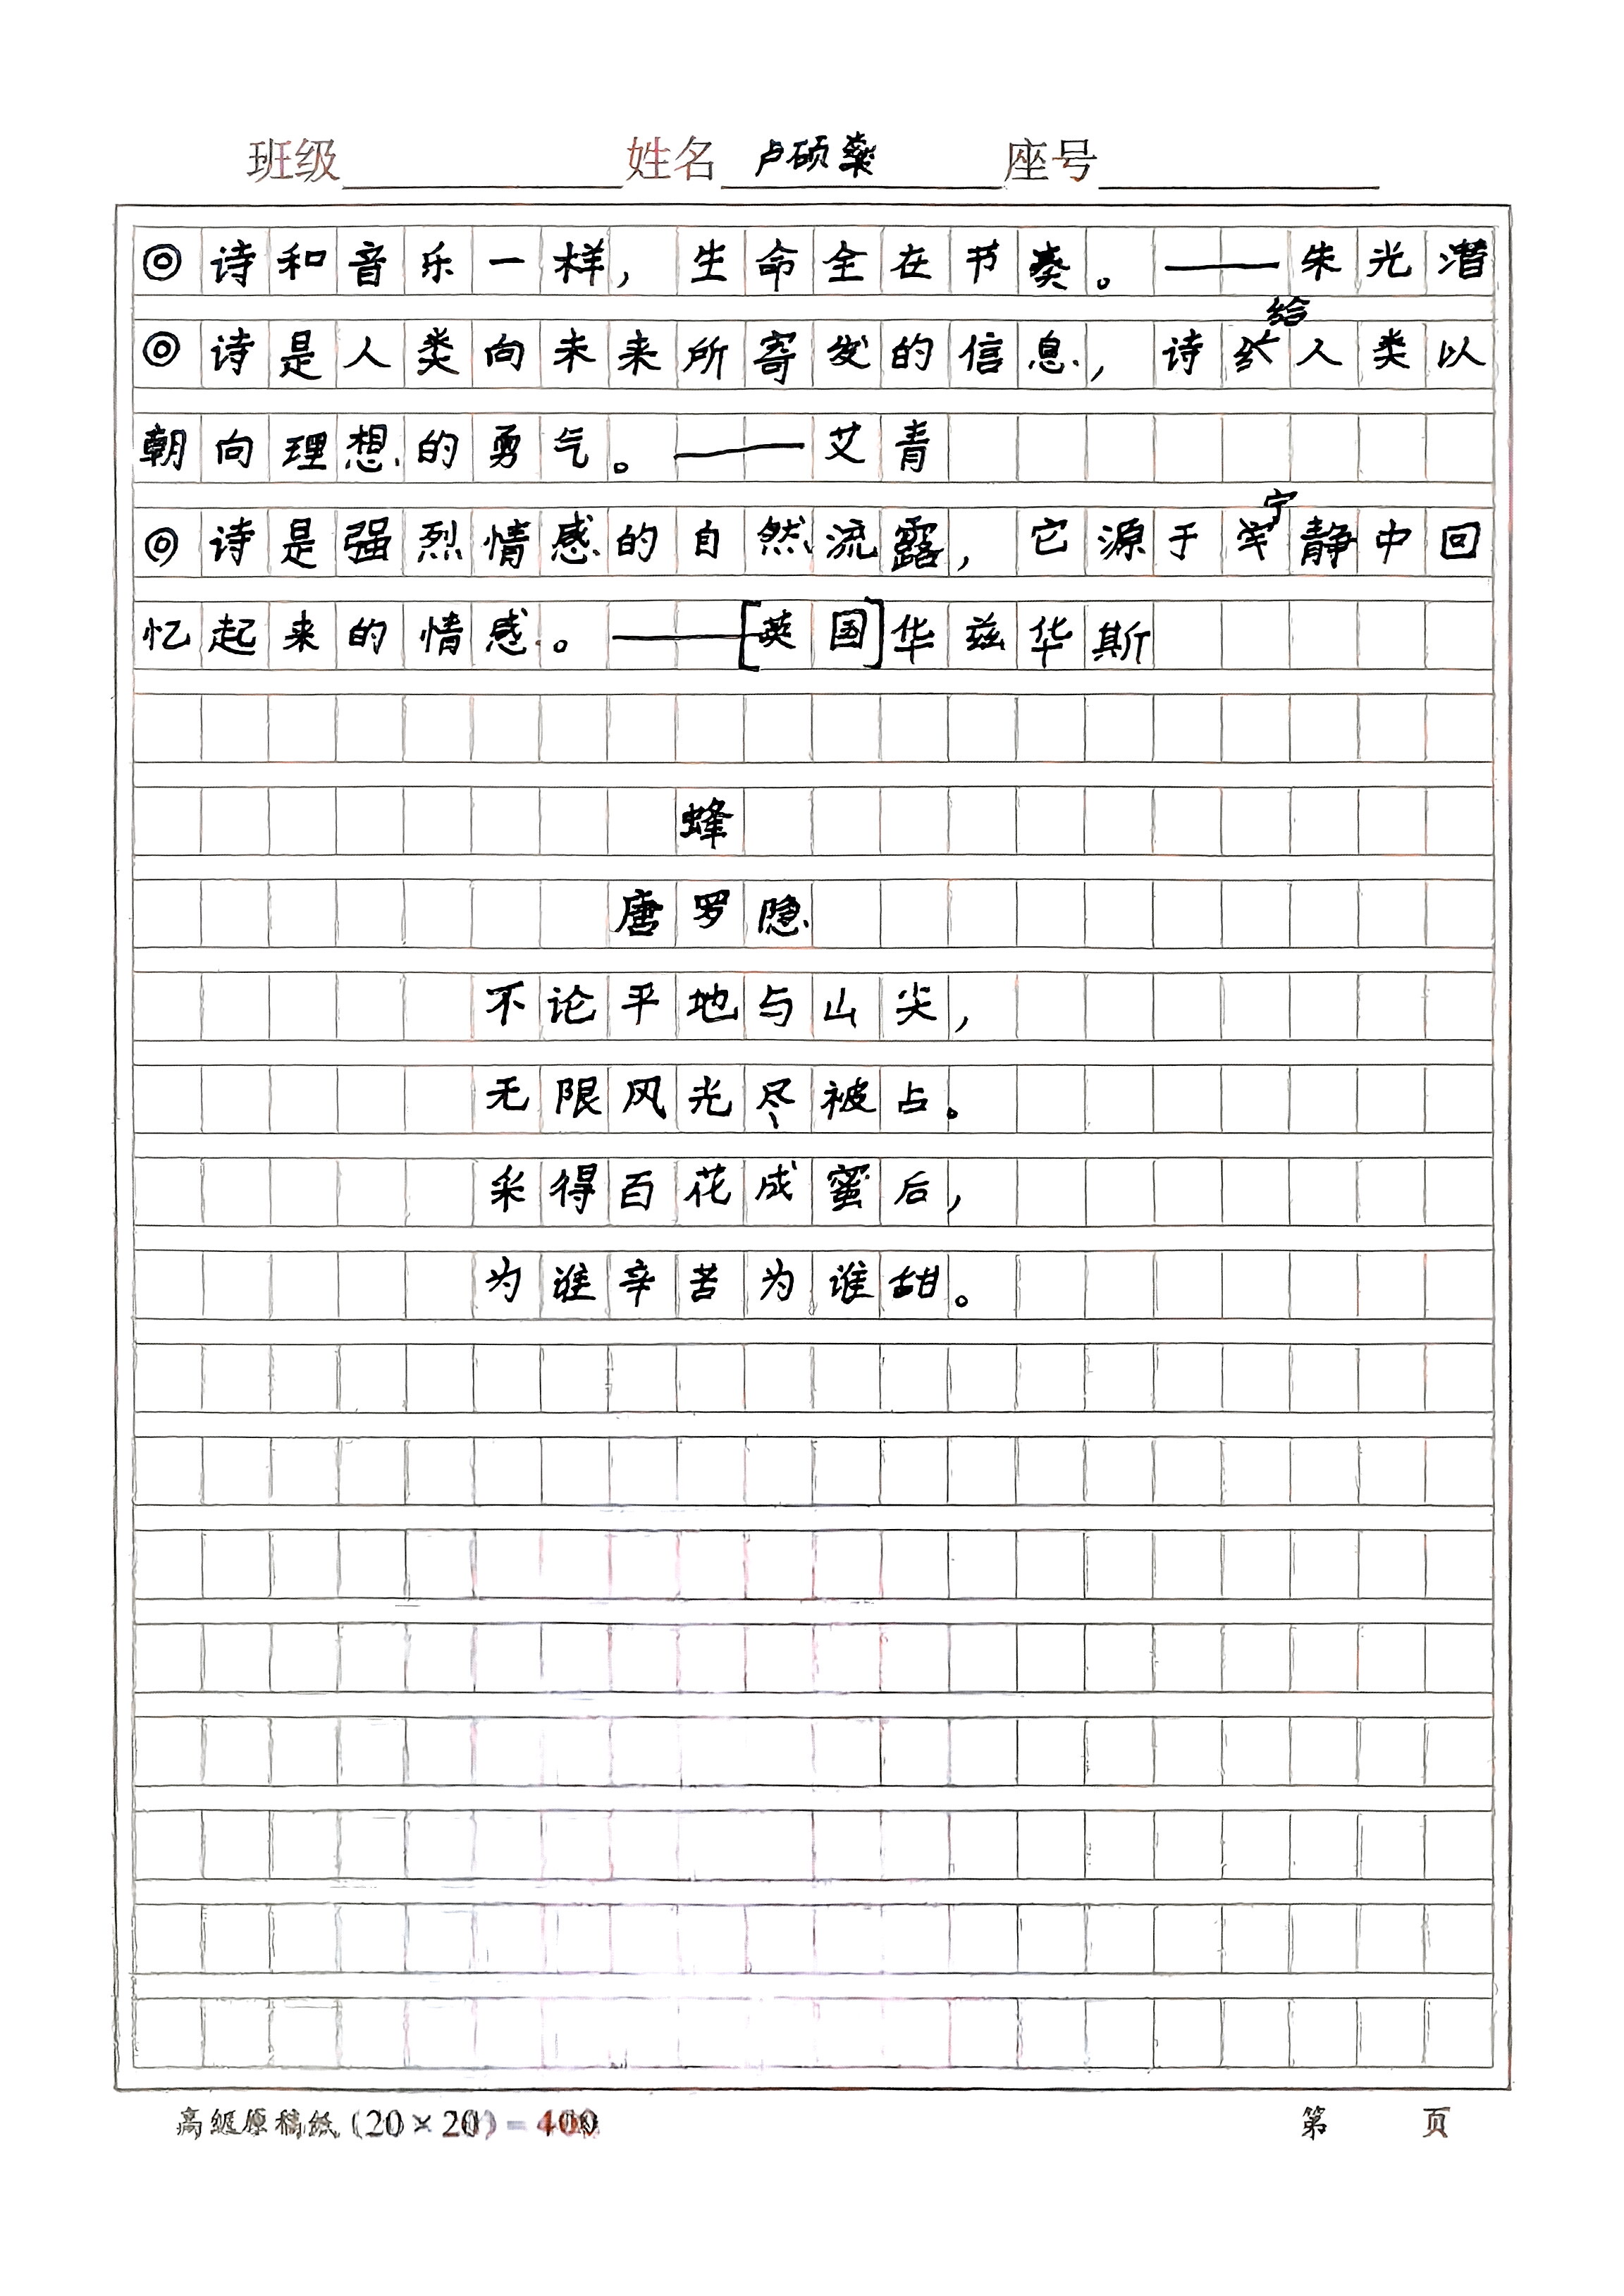 班级 姓名 卢硕燊 座号
◎诗和音乐一样，生命全在节奏。——朱光潜
◎诗是人类向未来所寄发的信息，诗给人类以
朝向理想的勇气。——艾青
◎诗是强烈情感的自然流露，它源于宁静中回
忆起来的情感。——[英国]华兹华斯
蜂
唐罗隐
不论平地与山尖，
无限风光尽被占。
采得百花成蜜后，
为谁辛苦为谁甜。
高级原稿纸(20×20)=400 第 页